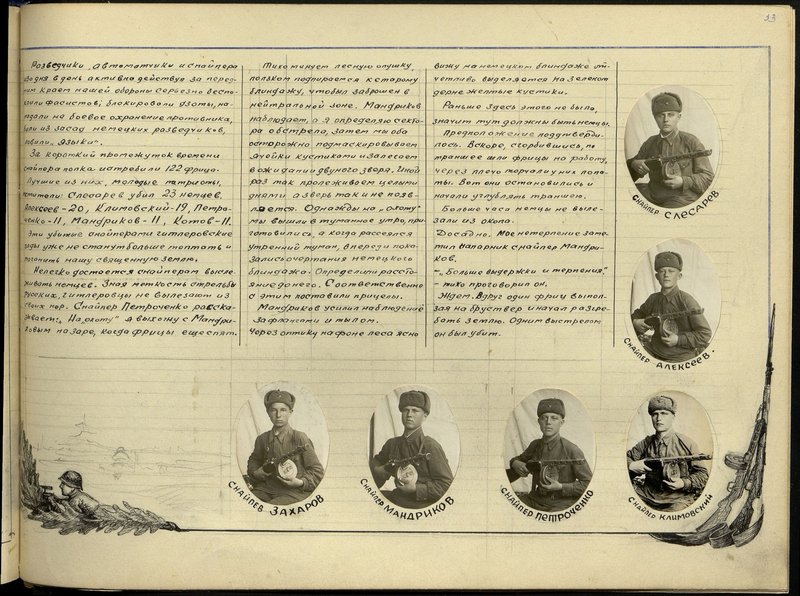 13
Разведчики, автоматчики и снайпера
изо дня в день активно действуя за перед-
ним краем нашей обороны серьезно беспо-
коили фашистов; блокировали дзоты, на-
падали на боевое охранение противника,
били из засад немецких разведчиков,
ловили „языки".
За короткий промежуток времени
снайпера полка истребили 122 фрица.
Лучшие из них, молодые патриоты,
Слесарев убил 23 немцев,
Алексеев-20, Климовский-19, Петро-
ченко-11, Мандриков-11, Котов-11.
Эти убитые снайперами гитлеровские
гады уже не станут больше топтать и
поганить нашу священную землю.
Нелегко достается снайперам высле-
живать немцев. Зная меткость стрельбы
русских, гитлеровцы не вылезают из
своих нор. Снайпер Петроченко расска-
зывает: „На охоту" я выхожу с Мандри-
ковым на заре, когда фрицы еще спят.
Тихо минуем лесную опушку,
ползком подпираемся к старому
блиндажу, что был заброшен в
нейтральной зоне. Мандриков
наблюдает, а я определяю секто-
ра обстрела, затем мы оба
осторожно подмаскировываем
ячейки кустиками и залегаем
в ожидании двуногого зверя. Иной
раз так пролеживаем целыми
днями а зверь так и не появ-
ляется. Однажды на „охоту"
мы вышли в туманное утро, при-
готовились, а когда рассеялся
утренний туман, впереди пока-
зались очертания немецкого
блиндажа. Определили расстоя-
ние до него. Соответственно
с этим поставили прицелы.
Мандриков усилил наблюдение
за флангами и тылом.
Через оптику на фоне леса ясно
вижу на немецком блиндаже от-
четливо выделяется на зеленом
дерне желтые кустики.
Раньше здесь этого не было,
значит тут должны быть немцы.
Предположение подтверди-
лось. Вскоре, сгорбившись, по
траншее шли фрицы на работу,
через плечо торчали у них лопа-
ты. Вот они остановились и
начали углублять траншею.
Больше часа немцы не выле-
зали из окопа.
Досадно. Мое нетерпение заме-
тил напарник снайпер Мандри-
ков.
-„Больше выдержки и терпения",
- тихо проговорил он.
Ждем. Вдруг один фриц выпол-
зая на бруствер и начал разгре-
бать землю. Одним выстрелом
он был убит.
Снайпер Слесарев
Снайпер Алексеев
Снайпер Захаров
Снайпер Мандриков
Снайпер Петроченко
Снайпер Климовский